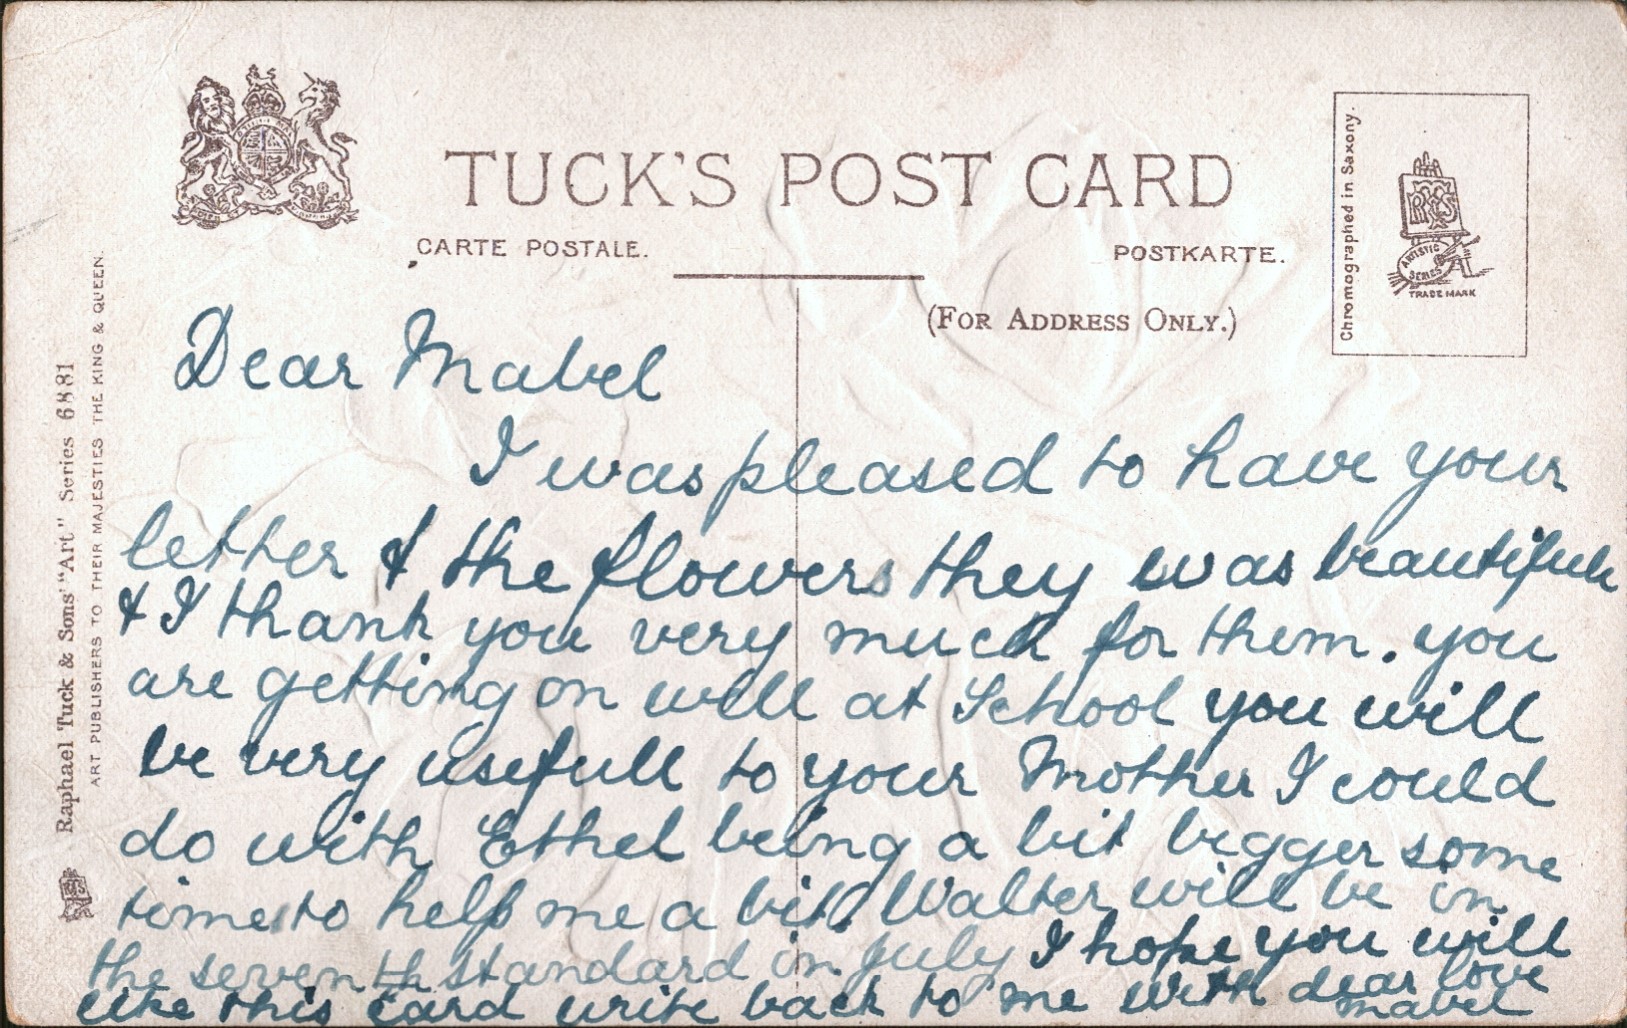 TUCK'S POST CARD
CARTE POSTALE.
POSTKARTE.
(FOR ADDRESS ONLY.)
Chromographed in Saxony.
ARTISTIC
SERIES
TRADE MARK
Raphael Tuck & Sons' "Art" Series 6881
ART PUBLISHERS TO THEIR MAJESTIES THE KING & QUEEN.
Dear Mabel
I was pleased to have your
letter & the flowers they was beautifull
& I thank you very much for them. you
are getting on well at School you will
be very usefull to your Mother I could
do with Ethel being a bit bigger some
times to help me a bit. Walter will be in
the seventh standard in July I hope you will
like this card write back to me with dear love
mabel